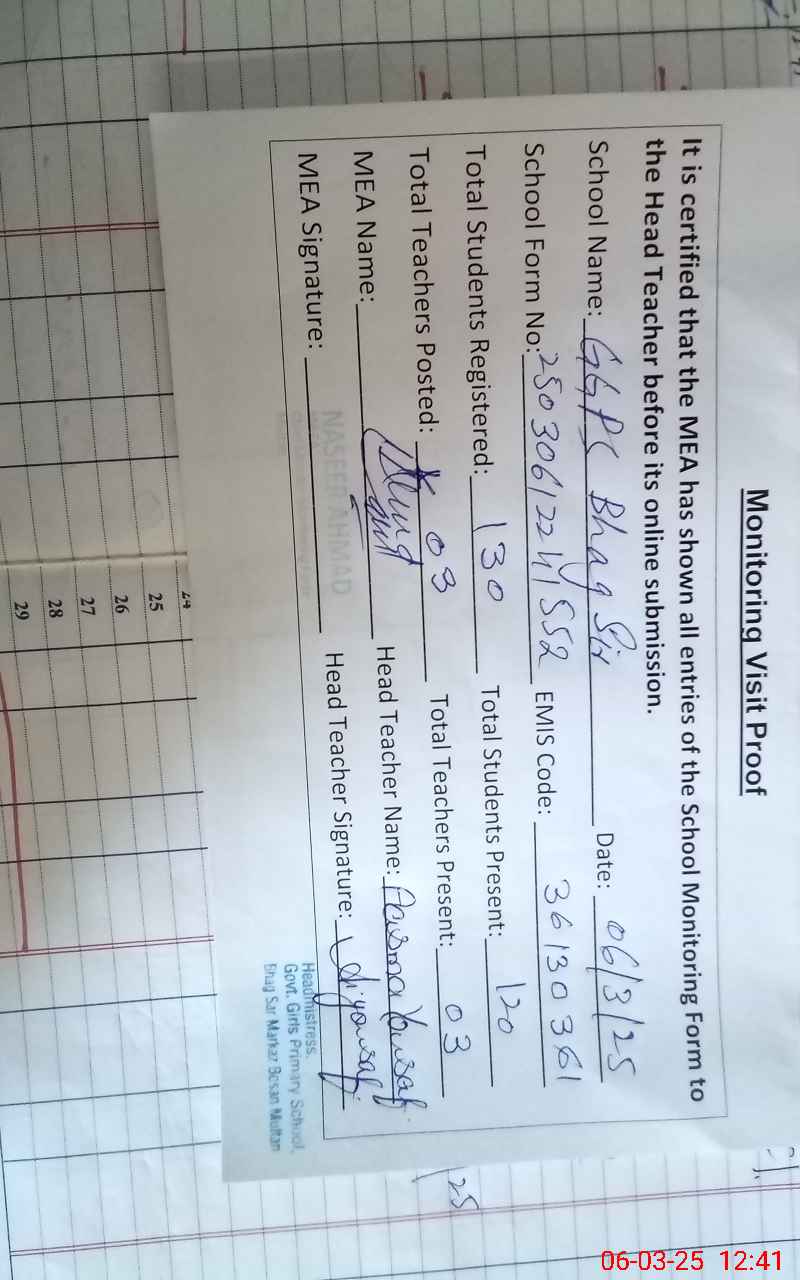 Monitoring Visit Proof
It is certified that the MEA has shown all entries of the School Monitoring Form to
the Head Teacher before its online submission.
School Name: GGPS Bhag Sir Date: 06/3/25
School Form No: 25030612241552 EMIS Code: 36130361
Total Students Registered: 130 Total Students Present: 120
Total Teachers Posted: 03 Total Teachers Present: 03
MEA Name: Head Teacher Name: Aasma Yousaf
MEA Signature: Head Teacher Signature:
NASEER AHMAD
Headmistress,
Govt. Girls Primary School,
Bhag Sar Markaz Bosan Multan
24
25
26
27
28
29
25
06-03-25 12:41